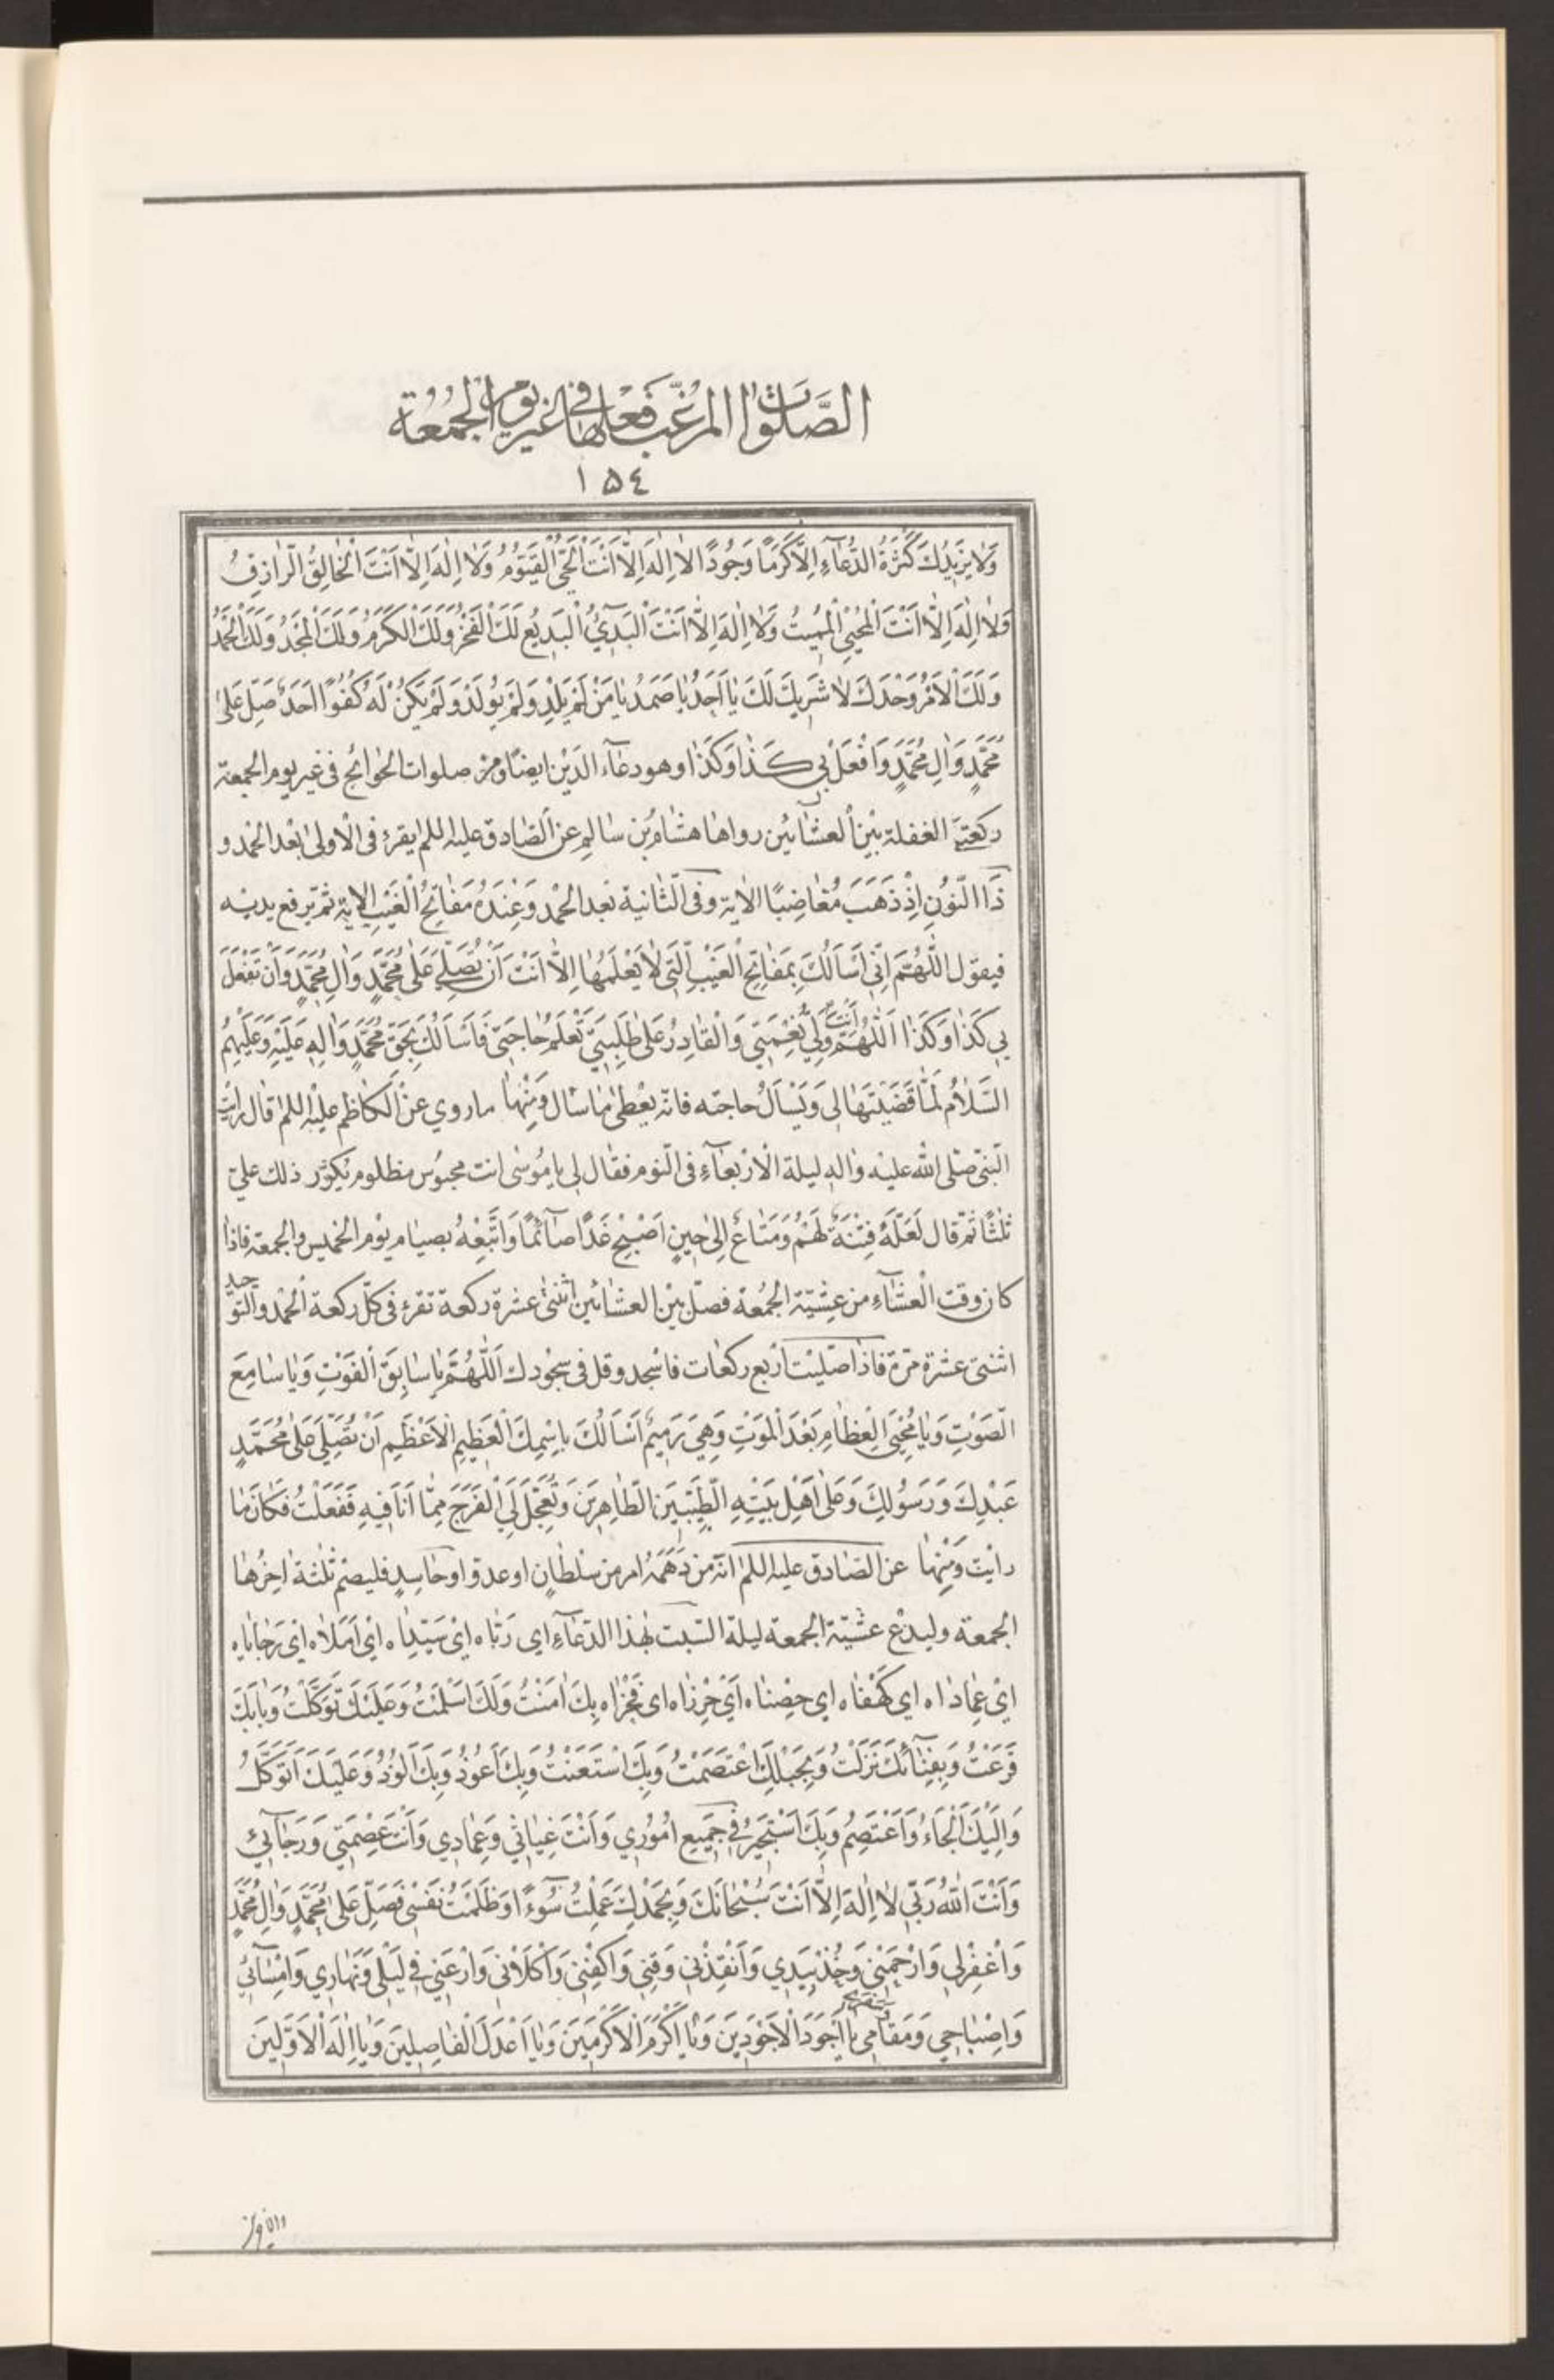 الصَّلَوٰاتُ المُرَغَّبُ فِعْلُهٰا فِي غَيْرِ يَوْمِ الْجُمُعَةِ
١٥٤
وَلٰا يَزِيدُكَ كَثْرَةُ الدُّعٰآءِ إِلّٰا كَرَمًا وَجُودًا لاٰ اِلٰهَ اِلّٰا اَنْتَ الْحَيُّ الْقَيُّومُ وَلٰا اِلٰهَ اِلّٰا اَنْتَ الْخٰالِقُ الرّٰازِقُ
وَلٰا اِلٰهَ اِلّٰا اَنْتَ الْمُحْيِي الْمُمِيتُ وَلٰا اِلٰهَ اِلّٰا اَنْتَ الْبَدِيءُ الْبَدِيعُ لَكَ الْفَخْرُ وَلَكَ الْكَرَمُ وَلَكَ الْمَجْدُ وَلَكَ الْحَمْدُ
وَلَكَ الْاَمْرُ وَحْدَكَ لٰا شَرِيكَ لَكَ يٰا اَحَدُ يٰا صَمَدُ يٰا مَنْ لَمْ يَلِدْ وَلَمْ يُولَدْ وَلَمْ يَكُنْ لَهُ كُفُوًا اَحَدٌ صَلِّ عَلىٰ
مُحَمَّدٍ وَاٰلِ مُحَمَّدٍ وَافْعَلْ بِي كَذٰا وَكَذٰا وهو دعٰآء الدَيْن ايضًا ومن صلوات الحوائج فى غير يوم الجمعة
ركعتي الغفلة بيْن العشٰائيْن رواها هشام بْن سٰالم عن الصّٰادق عليه اللم يقرء فى الْاولىٰ بعْد الحْمد و
ذَا النُّونِ اِذْ ذَهَبَ مُغٰاضِبًا الاٰية وفى الثّٰانية بعْد الحْمد وَعِنْدَهُ مَفٰاتِحُ الْغَيْبِ الاية ثمّ يرفع يديْه
فيقول اَللّٰهُمَّ اِنّي اَسْاَلُكَ بِمَفٰاتِحِ الْغَيْبِ الَّتِي لٰا يَعْلَمُهٰا اِلّٰا اَنْتَ اَنْ تُصَلِّيَ عَلىٰ مُحَمَّدٍ وَاٰلِ مُحَمَّدٍ وَاَنْ تَفْعَلَ
بِي كَذٰا وَكَذٰا اَللّٰهُمَّ اَنْتَ وَلِيُّ نِعْمَتِي وَالْقٰادِرُ عَلىٰ طَلِبَتِي تَعْلَمُ حٰاجَتِي فَاَسْاَلُكَ بِحَقِّ مُحَمَّدٍ وَاٰلِهِ عَلَيْهِ وَعَلَيْهِمُ
السَّلٰامُ لَمّٰا قَضَيْتَهٰا لِي وَيَسْاَلُ حاجته فانّه يعْطىٰ مٰا سٰال وَمِنْهٰا ماروي عنْ الكٰاظم عليْه اللم قال رايت
النبيّ صلى الله عليْه واله ليلة الْارْبعٰآءِ فى النّوم فقٰال لى يا مُوسٰى انت محبُوس مظلوم يكرّر ذلك عليّ
ثلٰثًا ثمّ قال لَعَلَّهُ فِتْنَةٌ لَهُمْ وَمَتٰاعٌ اِلىٰ حِينٍ اَصْبِحْ غَدًا صٰآئمًا وَاَتْبِعْهُ بصيٰام يوْم الخميس والجمعة فاذٰا
كان وقت الْعشٰآءِ من عشيّة الجمُعة فصلّ بيْن العشٰائيْن اثنتىْ عشرة ركعة تقرء فى كلّ ركعة الْحمْد والتوحيد
اثنتى عشرة مرّة فاذا صلّيْت ارْبع ركعات فاسْجد وقل فى سجُودك اَللّٰهُمَّ يٰا سٰابِقَ الْفَوْتِ وَيٰا سٰامِعَ
الصَّوْتِ وَيٰا مُحْيِيَ الْعِظٰامِ بَعْدَ الْمَوْتِ وَهِيَ رَمِيمٌ اَسْاَلُكَ بِاسْمِكَ الْعَظِيمِ الْاَعْظَمِ اَنْ تُصَلِّيَ عَلىٰ مُحَمَّدٍ
عَبْدِكَ وَرَسُولِكَ وَعَلىٰ اَهْلِ بَيْتِهِ الطَّيِّبِينَ الطّٰاهِرِينَ وَتُعَجِّلَ لِيَ الْفَرَجَ مِمّٰا اَنَا فِيهِ فَفَعَلْتُ فكٰانَ مٰا
رايْت وَمِنْهٰا عن الصٰادق عليه اللم انّه من دَهَمَهُ امر من سلْطٰانٍ او عدوّ او حٰاسِدٍ فليصمْ ثلٰثة اخِرُهٰا
الجمعة وليدْع عشيّة الجمعة ليلة السّبت بهٰذا الدّعٰآءِ اى رَبّٰاه اىْ سَيّدٰاه اىْ اَمَلٰاه اىْ رَجٰايٰاه
اىْ عِمٰادٰاه اي كَهْفٰاه اي حِصْنٰاه اَيْ حِرْزٰاه اى فَخْرٰاه بِكَ اٰمَنْتُ وَلَكَ اَسْلَمْتُ وَعَلَيْكَ تَوَكَّلْتُ وَبٰابَكَ
قَرَعْتُ وَبِفِنٰآئِكَ نَزَلْتُ وَبِحَبْلِكَ اعْتَصَمْتُ وَبِكَ اسْتَعَنْتُ وَبِكَ اَعُوذُ وَبِكَ اَلُوذُ وَعَلَيْكَ اَتَوَكَّلُ
وَاِلَيْكَ اَلْجَاءُ وَاَعْتَصِمُ وَبِكَ اَسْتَجِيرُ فِي جَمِيعِ اُمُورِي وَاَنْتَ غِيٰاثِي وَعِمٰادِي وَاَنْتَ عِصْمَتِي وَرَجٰآئِي
وَاَنْتَ اللهُ رَبِّي لٰا اِلٰهَ اِلّٰا اَنْتَ سُبْحٰانَكَ وَبِحَمْدِكَ عَمِلْتُ سُوٓءًا وَظَلَمْتُ نَفْسِي فَصَلِّ عَلىٰ مُحَمَّدٍ وَاٰلِ مُحَمَّدٍ
وَاغْفِرْلِي وَارْحَمْنِي وَخُذْ بِيَدِي وَاَنْقِذْنِي وَقِنِي وَاكْفِنِي وَاكْلَاْنِي وَارْعَنِي فِي لَيْلِي وَنَهٰارِي وَاِمْسٰآئِي
وَاِصْبٰاحِي وَمَقٰامِي يٰا اَجْوَدَ الْاَجْوَدِينَ وَيٰا اَكْرَمَ الْاَكْرَمِينَ وَيٰا اَعْدَلَ الْفٰاصِلِينَ وَيٰا اِلٰهَ الْاَوَّلِينَ